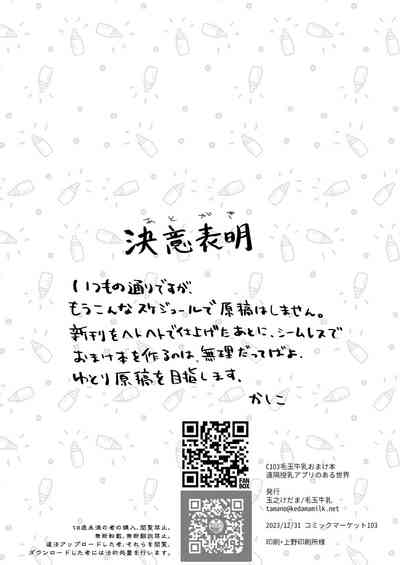 あとがき
決意表明
いつもの通りですが、
もうこんなスケジュールで原稿はしません。
新刊をヘトヘトで仕上げたあとに、シームレスで
おまけ本を作るのは、無理だってばよ.
ゆとり原稿を目指します.
かしこ
FAN
BOX
C103毛玉牛乳おまけ本
遠隔授乳アプリのある世界
発行
玉之けだま/毛玉牛乳
tamano@kedamamilk.net
2023/12/31 コミックマーケット103
印刷・上野印刷所様
18歳未満の者の購入、閲覧禁止。
無断転載、無断翻訳禁止。
違法アップロードした者、それらを閲覧、
ダウンロードした者には法的処置を行います。